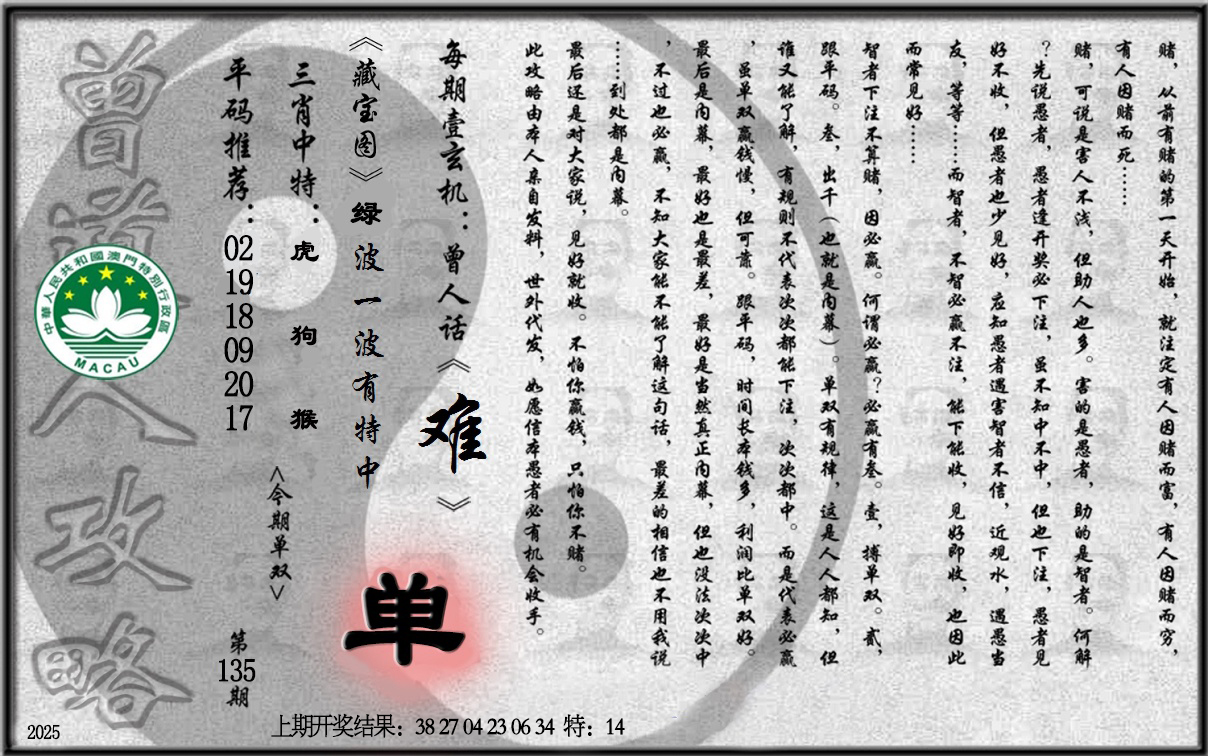 赌，从前有赌的第一天开始，就注定有人因赌而富，有人因赌而穷，
有人因赌而死……
赌，可说是害人不浅，但助人也多。害的是愚者，助的是智者。何解
？先说愚者，愚者逢开奖必下注，虽不知中不中，但也下注，愚者见
好不收，但愚者也少见好，应知愚者遇害智者不信，近观水，遇愚当
友，等等……而智者，不智必赢不注，能下能收，见好即收，也因此
而常见好……
智者下注不算赌，因必赢。何谓必赢？必赢有叁。壹，搏单双。贰，
跟平码。叁，出千（也就是内幕）。单双有规律，这是人人都知，但
谁又能了解，有规则不代表次次都能下注，次次都中。而是代表必赢
，虽单双赢钱慢，但可靠。跟平码，时间长本钱多，利润比单双好。
最后是内幕，最好也是最差，最好是当然真正内幕，但也没法次次中
，不过也必赢，不知大家能不能了解这句话，最差的相信也不用我说
……到处都是内幕。
最后还是对大家说，见好就收。不怕你赢钱，只怕你不赌。
此攻略由本人亲自发料，世外代发，如愿信本愚者必有机会收手。
每期壹玄机：曾人话《难》
《藏宝图》绿波一波有特中
三肖中特：虎 狗 猴
平码推荐：02 19 18 09 20 17
<今期单双>
单
第135期
曾道人攻略
中華人民共和國澳門特別行政區
MACAU
2025
上期开奖结果：38 27 04 23 06 34 特：14